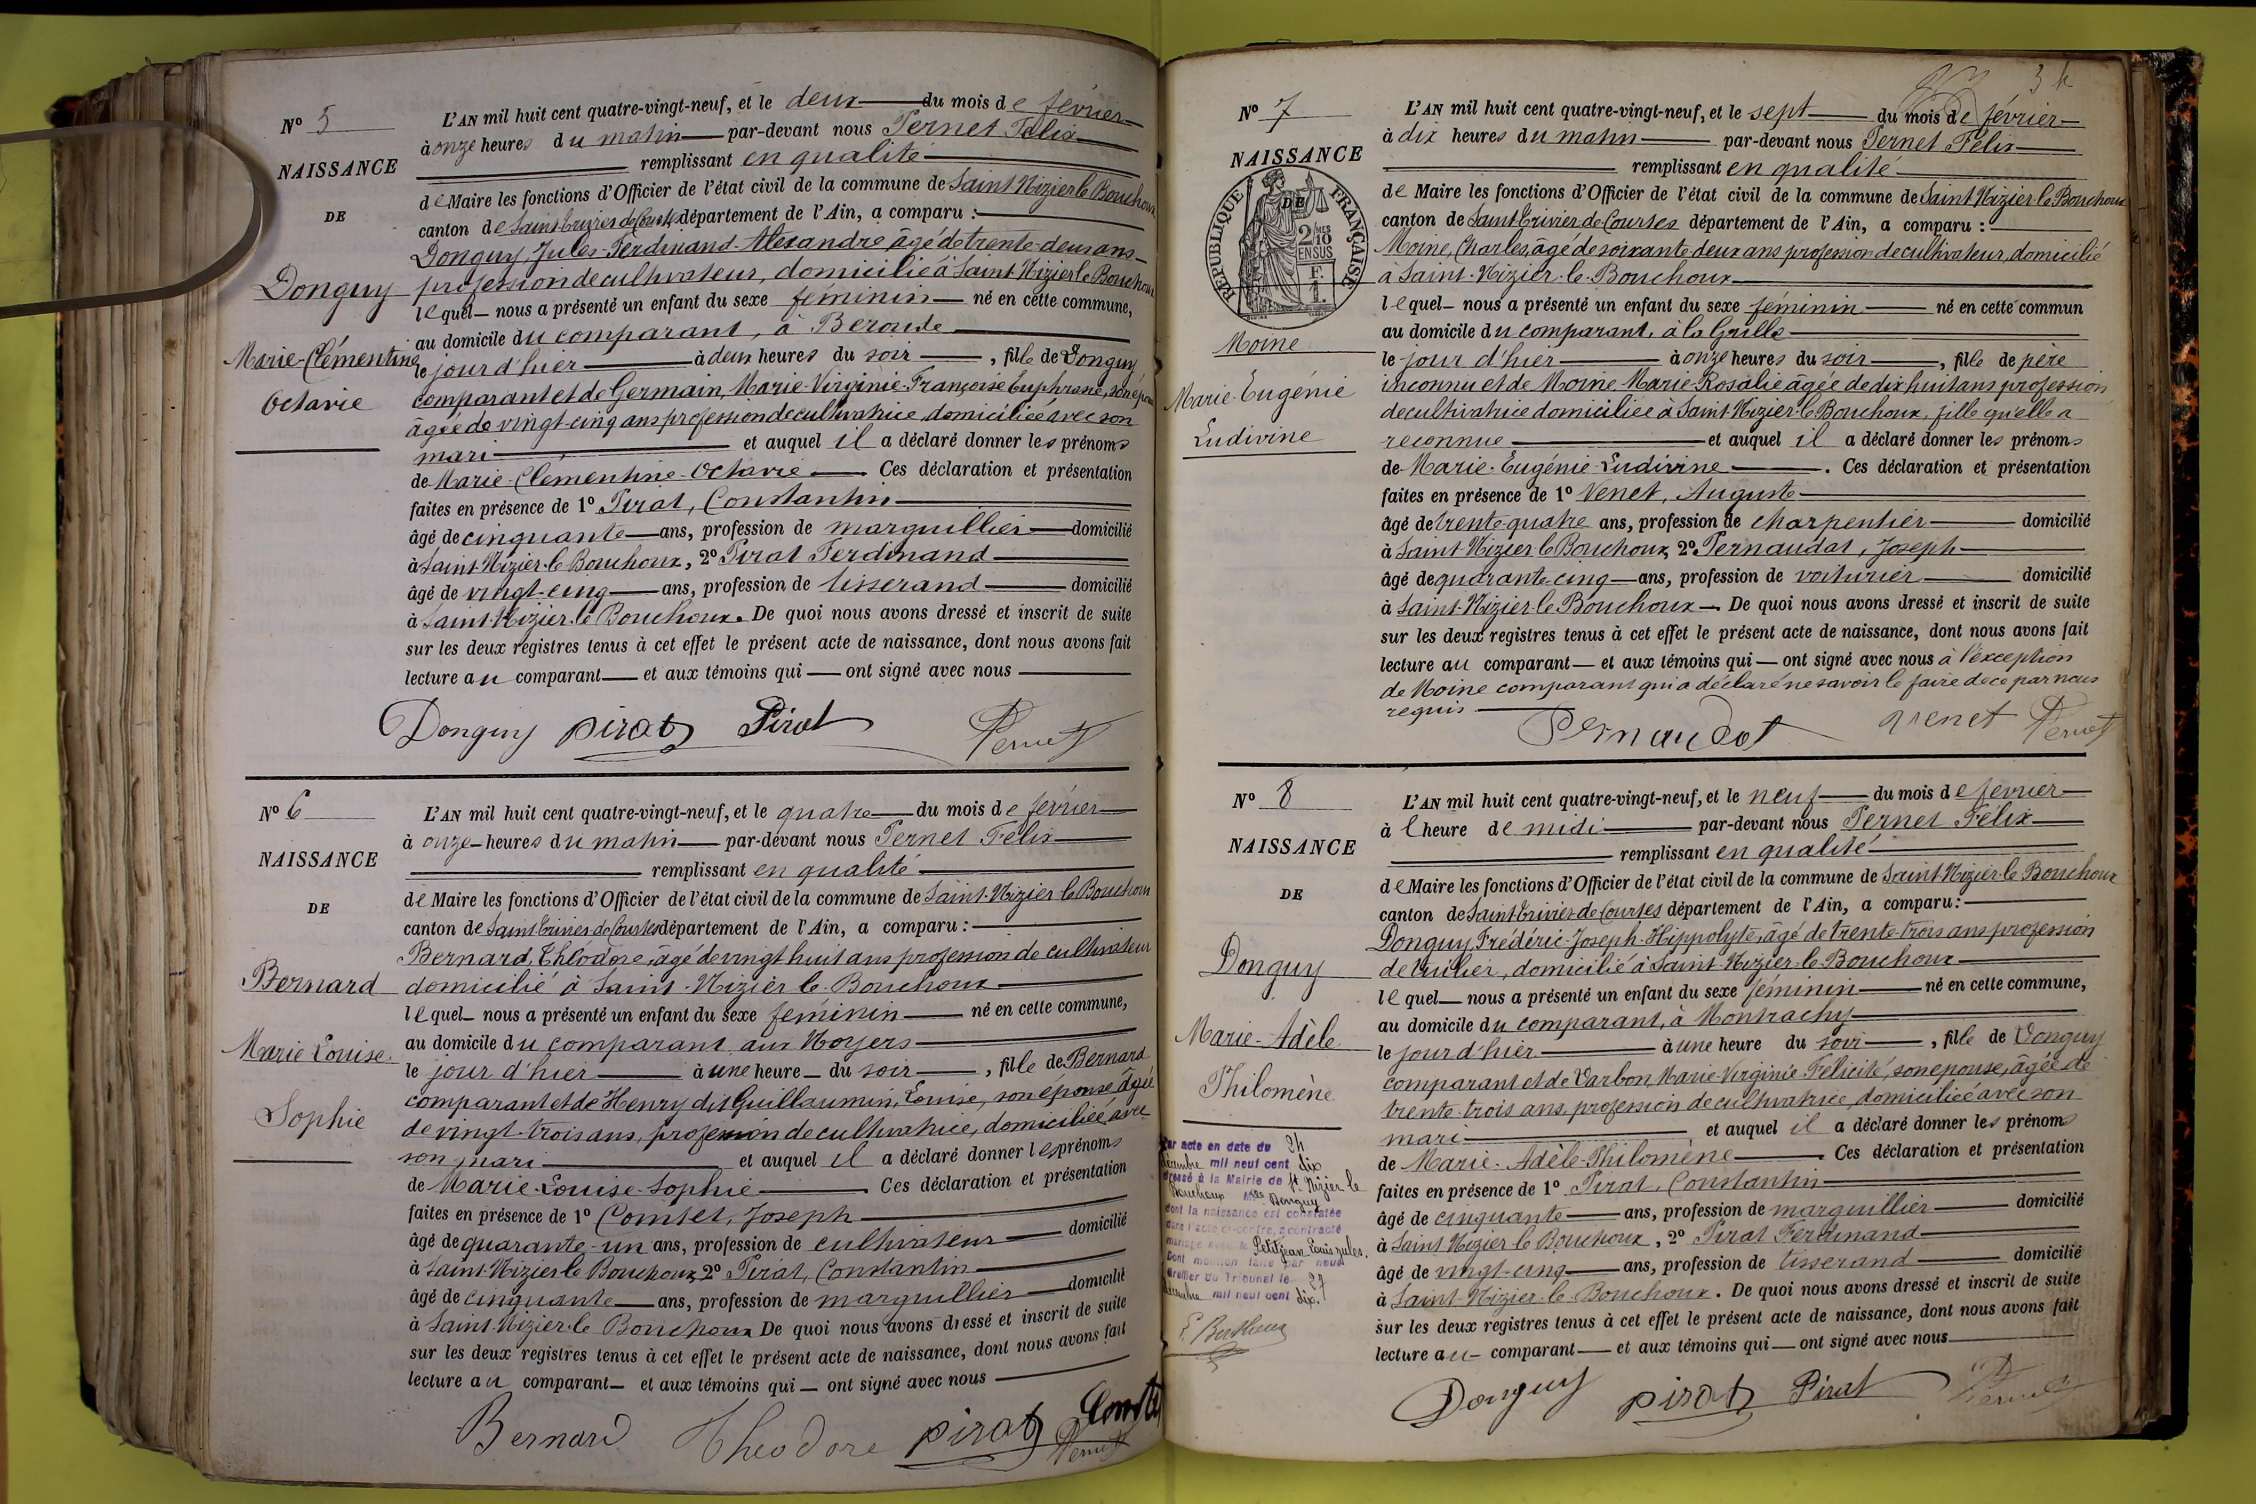 Nº 5
NAISSANCE
DE
Donguy
Marie-Clémentine
Octavie
L'AN mil huit cent quatre-vingt-neuf, et le deux du mois de février
à onze heures du matin par-devant nous Pernet Félix
remplissant en qualité
de Maire les fonctions d'Officier de l'état civil de la commune de Saint Nizier le Bouchoux
canton de Saint Trivier de Courtes département de l'Ain, a comparu :
Donguy, Jules-Ferdinand-Alexandre, âgé de trente-deux ans
profession de cultivateur, domicilié à Saint-Nizier le Bouchoux
lequel nous a présenté un enfant du sexe féminin né en cette commune,
au domicile du comparant, à Beroude
le jour d'hier à deux heures du soir, fille de Donguy
comparant et de Germain, Marie-Virginie-Françoise Euphrasie, son épouse
âgée de vingt-cinq ans profession de cultivatrice domiciliée avec son
mari et auquel il a déclaré donner les prénoms
de Marie-Clémentine-Octavie. Ces déclaration et présentation
faites en présence de 1º Pirat, Constantin
âgé de cinquante ans, profession de marguillier domicilié
à Saint-Nizier-le Bouchoux, 2º Pirat Ferdinand
âgé de vingt-cinq ans, profession de tisserand domicilié
à Saint-Nizier-le Bouchoux. De quoi nous avons dressé et inscrit de suite
sur les deux registres tenus à cet effet le présent acte de naissance, dont nous avons fait
lecture au comparant et aux témoins qui ont signé avec nous
Donguy pirat Pirat Pernet
Nº 6
NAISSANCE
DE
Bernard
Marie Louise
Sophie
L'AN mil huit cent quatre-vingt-neuf, et le quatre du mois de février
à onze heures du matin par-devant nous Pernet Félix
remplissant en qualité
de Maire les fonctions d'Officier de l'état civil de la commune de Saint-Nizier le Bouchoux
canton de Saint Trivier de Courtes département de l'Ain, a comparu :
Bernard, Théodore, âgé de vingt huit ans profession de cultivateur
domicilié à Saint-Nizier-le-Bouchoux
lequel nous a présenté un enfant du sexe féminin né en cette commune,
au domicile du comparant aux Noyers
le jour d'hier à une heure du soir, fille de Bernard
comparant et de Henry dit Guillaumin, Louise, son épouse âgée
de vingt-trois ans, profession de cultivatrice, domiciliée avec
son mari et auquel il a déclaré donner les prénoms
de Marie-Louise-Sophie Ces déclaration et présentation
faites en présence de 1º Comtet, Joseph
âgé de quarante-un ans, profession de cultivateur domicilié
à Saint-Nizier le Bouchoux 2º Pirat, Constantin
âgé de cinquante ans, profession de marguillier domicilié
à Saint-Nizier-le Bouchoux De quoi nous avons dressé et inscrit de suite
sur les deux registres tenus à cet effet le présent acte de naissance, dont nous avons fait
lecture au comparant et aux témoins qui ont signé avec nous
Bernard Théodore pirat Comtet Pernet
Nº 7
NAISSANCE
DE
RÉPUBLIQUE FRANÇAISE
2/10 MES
EN SUS
F.
1.
Moine
Marie-Eugénie
Ludivine
L'AN mil huit cent quatre-vingt-neuf, et le sept du mois de février
à dix heures du matin par-devant nous Pernet Félix
remplissant en qualité
de Maire les fonctions d'Officier de l'état civil de la commune de Saint Nizier le Bouchoux
canton de Saint Trivier de Courtes département de l'Ain, a comparu :
Moine, Charles, âgé de soixante deux ans profession de cultivateur, domicilié
à Saint-Nizier-le-Bouchoux
lequel nous a présenté un enfant du sexe féminin né en cette commun
au domicile du comparant, à la Grille
le jour d'hier à onze heures du soir, fille de père
inconnu et de Moine Marie-Rosalie âgée de dix huit ans profession
de cultivatrice domiciliée à Saint-Nizier-le-Bouchoux, fille qu'elle a
reconnue et auquel il a déclaré donner les prénoms
de Marie-Eugénie-Ludivine. Ces déclaration et présentation
faites en présence de 1º Venet, Auguste
âgé de trente-quatre ans, profession de charpentier domicilié
à Saint-Nizier-le Bouchoux 2º Pernaudat, Joseph
âgé de quarante-cinq ans, profession de voiturier domicilié
à Saint-Nizier-le Bouchoux. De quoi nous avons dressé et inscrit de suite
sur les deux registres tenus à cet effet le présent acte de naissance, dont nous avons fait
lecture au comparant et aux témoins qui ont signé avec nous à l'exception
de Moine comparant qui a déclaré ne savoir le faire de ce par nous
requis
Pernaudat venet Pernet
Nº 8
NAISSANCE
DE
Donguy
Marie-Adèle
Philomène
Par acte en date du 24
décembre mil neuf cent dix
dressé à la Mairie de St Nizier le
Bouchoux Mlle Donguy
dont la naissance est constatée
dans l'acte ci-contre, a contracté
mariage avec M. Petitjean Louis Jules.
Dont mention faite par nous
Greffier du Tribunal le 27
décembre mil neuf cent dix.
L'AN mil huit cent quatre-vingt-neuf, et le neuf du mois de février
à l heure de midi par-devant nous Pernet Félix
remplissant en qualité
de Maire les fonctions d'Officier de l'état civil de la commune de Saint Nizier-le Bouchoux
canton de Saint Trivier de Courtes département de l'Ain, a comparu :
Donguy Frédéric-Joseph-Hippolyte, âgé de trente-trois ans profession
de tuilier, domicilié à Saint-Nizier-le-Bouchoux
lequel nous a présenté un enfant du sexe féminin né en cette commune,
au domicile du comparant, à Montrachy
le jour d'hier à une heure du soir, fille de Donguy
comparant et de Varbon, Marie-Virginie-Félicité, son épouse, âgée de
trente-trois ans, profession de cultivatrice, domiciliée avec son
mari et auquel il a déclaré donner les prénoms
de Marie-Adèle-Philomène. Ces déclaration et présentation
faites en présence de 1º Pirat, Constantin
âgé de cinquante ans, profession de marguillier domicilié
à Saint Nizier-le Bouchoux, 2º Pirat Ferdinand
âgé de vingt-cinq ans, profession de tisserand domicilié
à Saint-Nizier-le-Bouchoux. De quoi nous avons dressé et inscrit de suite
sur les deux registres tenus à cet effet le présent acte de naissance, dont nous avons fait
lecture au comparant et aux témoins qui ont signé avec nous
Donguy pirat Pirat Pernet